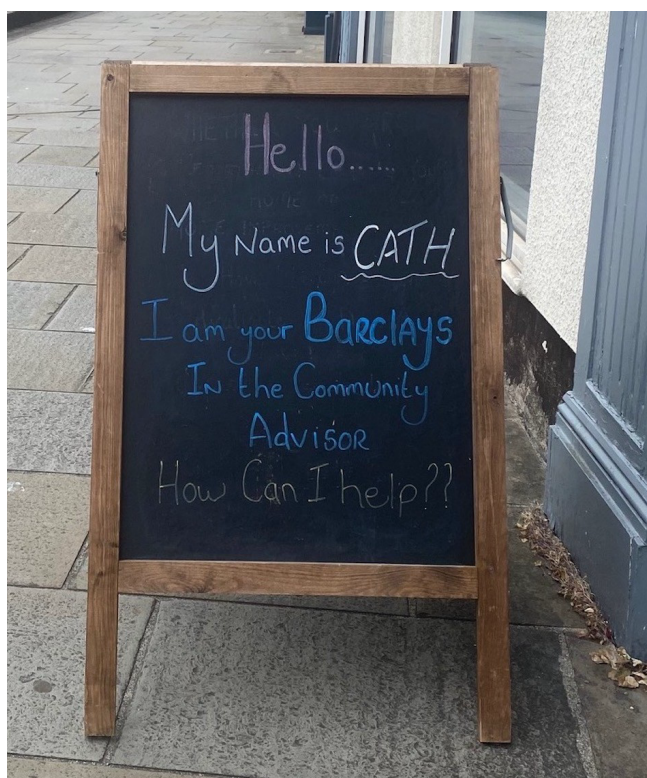 Hello......
My Name is CATH
I am your Barclays
In the Community
Advisor
How Can I help??